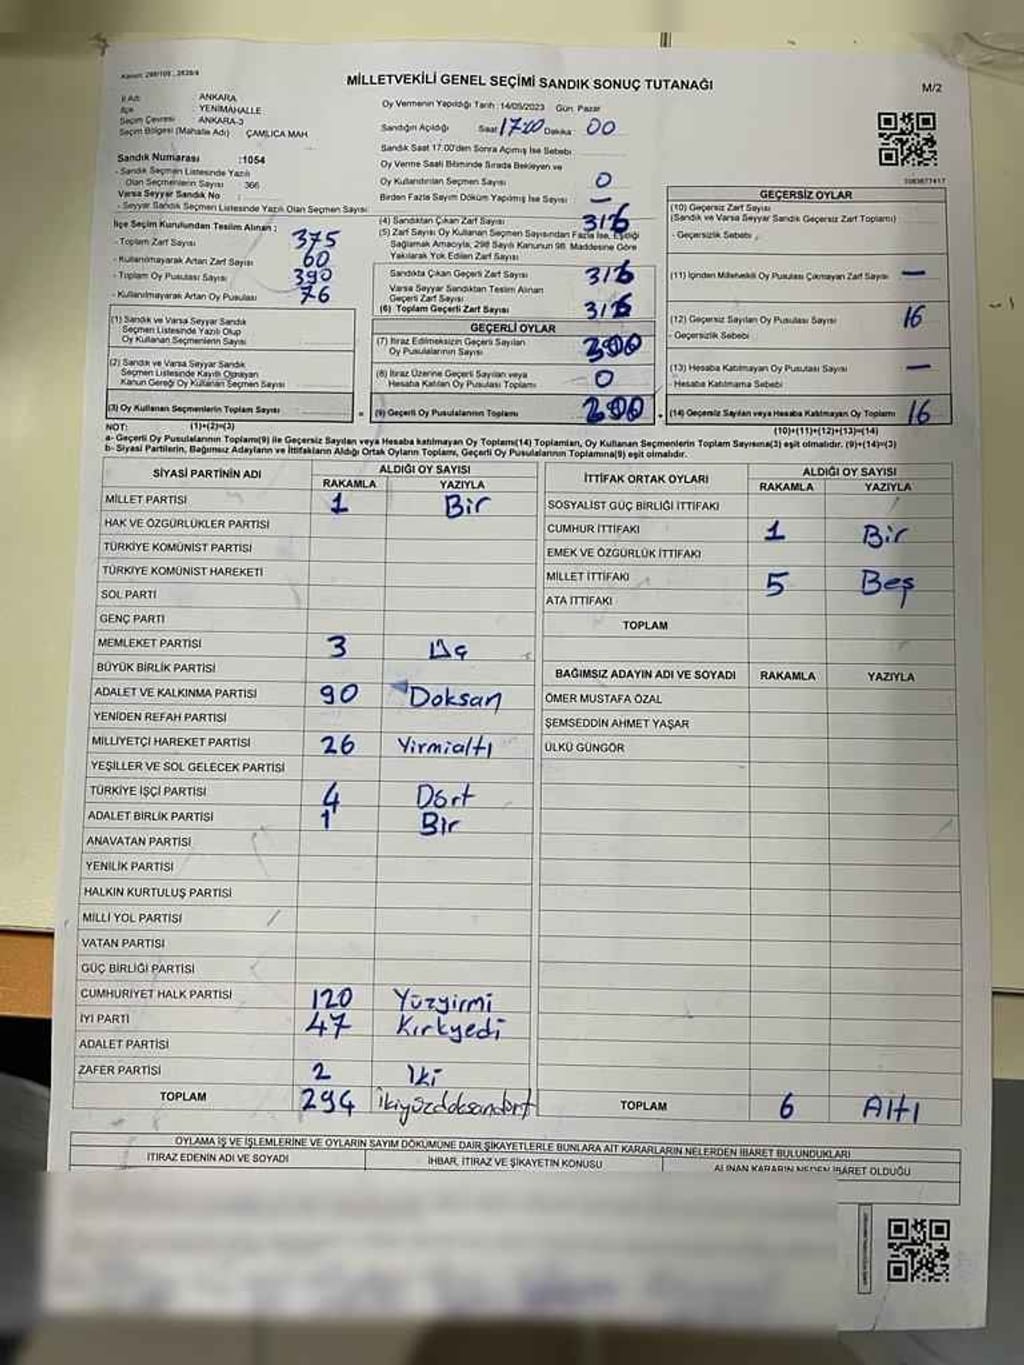 Kanun: 298/105 , 2839/4
MİLLETVEKİLİ GENEL SEÇİMİ SANDIK SONUÇ TUTANAĞI
M/2
İl Adı : ANKARA
İlçe : YENİMAHALLE
Seçim Çevresi : ANKARA-3
Seçim Bölgesi (Mahalle Adı) : ÇAMLICA MAH
Oy Vermenin Yapıldığı Tarih : 14/05/2023 Gün: Pazar
Sandığın Açıldığı Saat 17:00 Dakika: 00
Sandık Saat 17.00'den Sonra Açımış İse Sebebi :
Oy Verme Saati Bitiminde Sırada Bekleyen ve
Oy Kullandırılan Seçmen Sayısı 0
Birden Fazla Sayım Döküm Yapılmış İse Sayısı : –
Sandık Numarası :1054
- Sandık Seçmen Listesinde Yazılı
Olan Seçmenlerin Sayısı 366
Varsa Seyyar Sandık No
- Seyyar Sandık Seçmen Listesinde Yazılı Olan Seçmen Sayısı
İlçe Seçim Kurulundan Teslim Alınan ;
- Toplam Zarf Sayısı 375
- Kullanılmayarak Artan Zarf Sayısı 60
- Toplam Oy Pusulası Sayısı 390
- Kullanılmayarak Artan Oy Pusulası 76
(1) Sandık ve Varsa Seyyar Sandık
Seçmen Listesinde Yazılı Olup
Oy Kullanan Seçmenlerin Sayısı
(2) Sandık ve Varsa Seyyar Sandık
Seçmen Listesinde Kayıtlı Olmayan
Kanun Gereği Oy Kullanan Seçmen Sayısı
(3) Oy Kullanan Seçmenlerin Toplam Sayısı
(1)+(2)=(3)
(4) Sandıktan Çıkan Zarf Sayısı 316
(5) Zarf Sayısı Oy Kullanan Seçmen Sayısından Fazla İse, Eşitliği
Sağlamak Amacıyla, 298 Sayılı Kanunun 98. Maddesine Göre
Yakılarak Yok Edilen Zarf Sayısı
Sandıkta Çıkan Geçerli Zarf Sayısı 316
Varsa Seyyar Sandıktan Teslim Alınan
Geçerli Zarf Sayısı
(6) Toplam Geçerli Zarf Sayısı 316
GEÇERLİ OYLAR
(7) İtiraz Edilmeksizin Geçerli Sayılan
Oy Pusulalarının Sayısı 300
(8) İtiraz Üzerine Geçerli Sayılan veya
Hesaba Katılan Oy Pusulası Toplamı 0
(9) Geçerli Oy Pusulalarının Toplamı
GEÇERSİZ OYLAR
(10) Geçersiz Zarf Sayısı
(Sandık ve Varsa Seyyar Sandık Geçersiz Zarf Toplamı)
- Geçersizlik Sebebi ;
(11) İçinden Milletvekili Oy Pusulası Çıkmayan Zarf Sayısı –
(12) Geçersiz Sayılan Oy Pusulası Sayısı 16
- Geçersizlik Sebebi
(13) Hesaba Katılmayan Oy Pusulası Sayısı –
- Hesaba Katılmama Sebebi
(14) Geçersiz Sayılan veya Hesaba Katılmayan Oy Toplamı 16
(10)+(11)+(12)+(13)=(14)
NOT:
a- Geçerli Oy Pusulalarının Toplamı(9) ile Geçersiz Sayılan veya Hesaba katılmayan Oy Toplamı(14) Toplamları, Oy Kullanan Seçmenlerin Toplam Sayısına(3) eşit olmalıdır. (9)+(14)=(3)
b- Siyasi Partilerin, Bağımsız Adayların ve İttifakların Aldığı Ortak Oyların Toplamı, Geçerli Oy Pusulalarının Toplamına(9) eşit olmalıdır.
SİYASİ PARTİNİN ADI ALDIĞI OY SAYISI
RAKAMLA YAZIYLA
MİLLET PARTİSİ 1 Bir
HAK VE ÖZGÜRLÜKLER PARTİSİ
TÜRKİYE KOMÜNİST PARTİSİ
TÜRKİYE KOMÜNİST HAREKETİ
SOL PARTİ
GENÇ PARTİ
MEMLEKET PARTİSİ 3 Üç
BÜYÜK BİRLİK PARTİSİ
ADALET VE KALKINMA PARTİSİ 90 Doksan
YENİDEN REFAH PARTİSİ
MİLLİYETÇİ HAREKET PARTİSİ 26 Yirmialtı
YEŞİLLER VE SOL GELECEK PARTİSİ
TÜRKİYE İŞÇİ PARTİSİ 4 Dört
ADALET BİRLİK PARTİSİ 1 Bir
ANAVATAN PARTİSİ
YENİLİK PARTİSİ
HALKIN KURTULUŞ PARTİSİ
MİLLİ YOL PARTİSİ
VATAN PARTİSİ
GÜÇ BİRLİĞİ PARTİSİ
CUMHURİYET HALK PARTİSİ 120 Yüzyirmi
İYİ PARTİ 47 Kırkyedi
ADALET PARTİSİ
ZAFER PARTİSİ 2 İki
TOPLAM 294 ikiyüzdoksandört
İTTİFAK ORTAK OYLARI ALDIĞI OY SAYISI
RAKAMLA YAZIYLA
SOSYALİST GÜÇ BİRLİĞİ İTTİFAKI
CUMHUR İTTİFAKI 1 Bir
EMEK VE ÖZGÜRLÜK İTTİFAKI
MİLLET İTTİFAKI 5 Beş
ATA İTTİFAKI
TOPLAM
BAĞIMSIZ ADAYIN ADI VE SOYADI RAKAMLA YAZIYLA
ÖMER MUSTAFA ÖZAL
ŞEMSEDDİN AHMET YAŞAR
ÜLKÜ GÜNGÖR
TOPLAM 6 Altı
OYLAMA İŞ VE İŞLEMLERİNE VE OYLARIN SAYIM DÖKÜMÜNE DAİR ŞİKAYETLERLE BUNLARA AİT KARARLARIN NELERDEN İBARET BULUNDUKLARI
İTİRAZ EDENİN ADI VE SOYADI İHBAR, İTİRAZ VE ŞİKAYETİN KONUSU ALINAN KARARIN NEDEN İBARET OLDUĞU